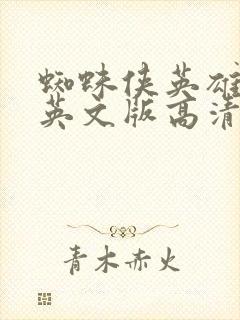 蜘蛛侠英雄
英文版高清
青木赤火